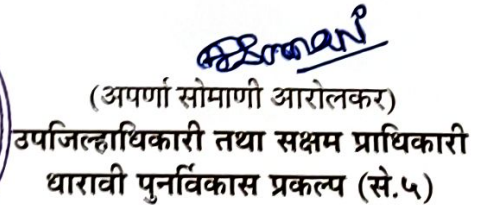 (अपर्णा सोमाणी आरोलकर)
उपजिल्हाधिकारी तथा सक्षम प्राधिकारी
धारावी पुनर्विकास प्रकल्प (से.५)